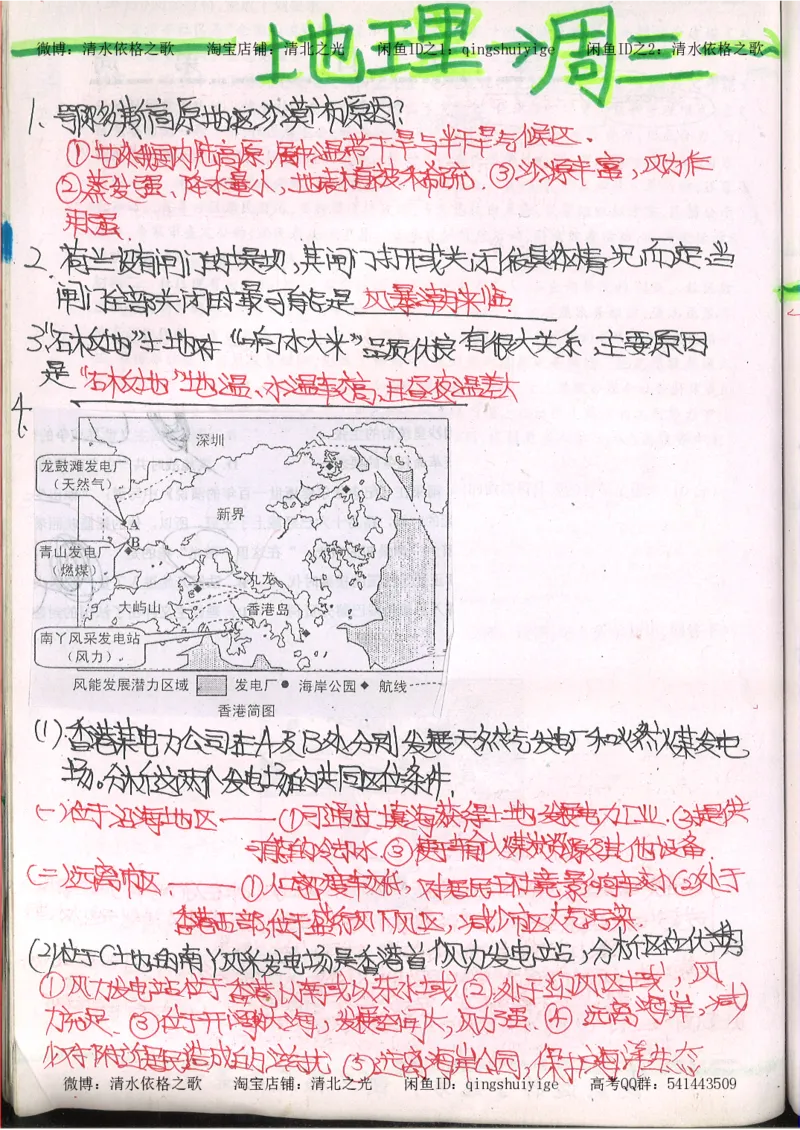 地理 周三
微博：清水依格之歌 淘宝店铺：清北之光 闲鱼ID之1：qingshuiyige 闲鱼ID之2：清水依格之歌
1、鄂尔多斯高原地区沙漠广布原因?
①地处我国内陆高原，居中温带干旱与半干旱气候区.
②蒸发量强、降水量小，地表植被稀疏 ③沙源丰富，风力作
用强.
2、荷兰设有闸门的堤坝，其闸门打开或关闭依具体情况而定，当
闸门全部关闭时最可能是 风暴潮来临
3."石板地"土地对"响水大米"品质优良有很大关系，主要原因
是"石板地"地温、水温较高，且昼夜温差大
4、
深圳
龙鼓滩发电厂
（天然气）
新界
A
B
青山发电厂
（燃煤）
九龙
大屿山
香港岛
南丫风采发电站
（风力）
风能发展潜力区域 发电厂 海岸公园 航线
香港简图
(1).香港某电力公司在A及B处分别发展天然气发电厂和燃煤发电
场。分析这两个发电场的共同区位条件.
(一)位于沿海地区——①可通过填海获得土地发展电力工业.②提供
可能的冷却水.③便于输入煤炭资源及其他设备.
(二)远离市区——①人口密度较低，对居民和环境影响较小②处于
香港西部，位于盛行风下风区，减少市区大气污染.
(2)位于C土地的南丫风采发电场是香港首个风力发电站，分析区位优势
①风力发电站位于香港以南或以东水域 ②处于迎风区域，风
力充足.③位于开阔大海，发展空间大，风力强.④远离海岸，减
少对附近居民造成的滋扰 ⑤远离海岸公园，保护海洋生态
微博：清水依格之歌 淘宝店铺：清北之光 闲鱼ID：qingshuiyige 高考QQ群：541443509